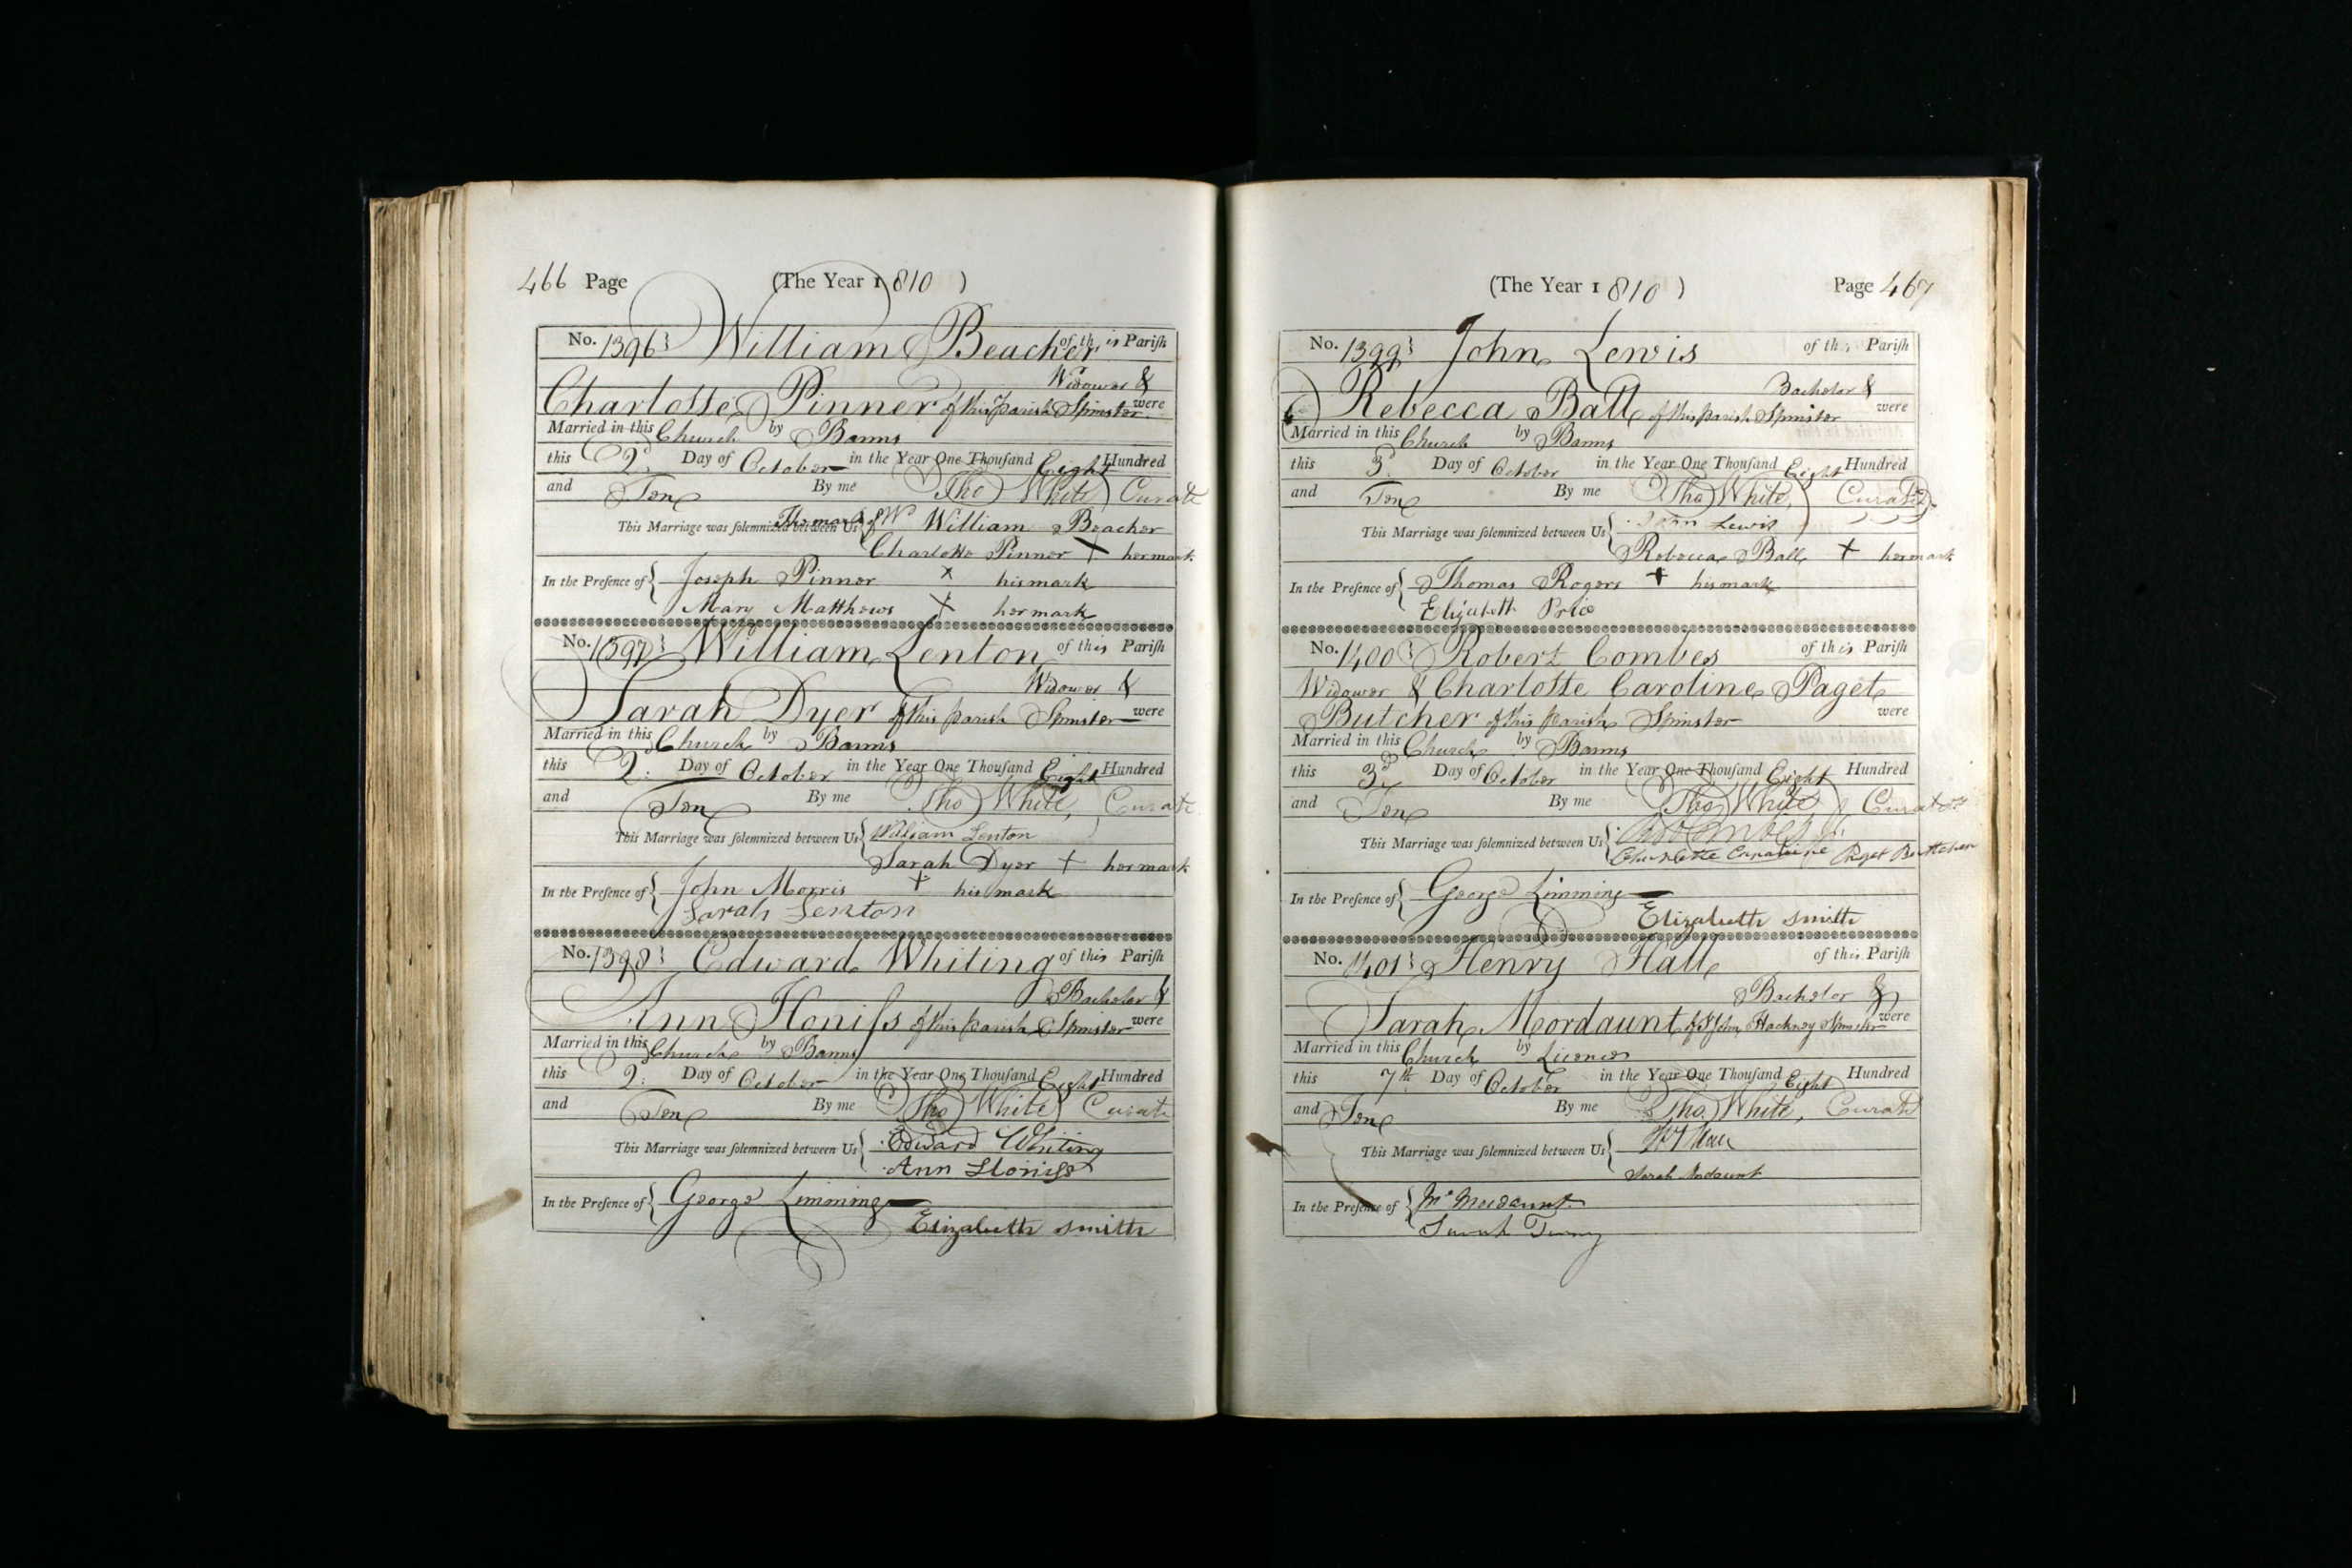 466 Page (The Year 1810)
No. 1396 William Beacher of this Parish
Widower &
Charlotte Pinner of this parish Spinster were
Married in this Church by Banns
this 2d Day of October in the Year One Thousand Eight Hundred
and Ten By me Tho White, Curate
This Marriage was solemnized between Us The mark of W William Beacher
Charlotte Pinner + her mark
In the Presence of Joseph Pinner x his mark
Mary Matthews + her mark
No. 1397 William Lenton of this Parish
Widower &
Sarah Dyer of this parish Spinster were
Married in this Church by Banns
this 2d Day of October in the Year One Thousand Eight Hundred
and Ten By me Tho White, Curate
This Marriage was solemnized between Us William Lenton
Sarah Dyer + her mark
In the Presence of John Morris + his mark
Sarah Lenton
No. 1398 Edward Whiting of this Parish
Bachelor &
Ann Honiss of this parish Spinster were
Married in this Church by Banns
this 2d Day of October in the Year One Thousand Eight Hundred
and Ten By me Tho White, Curate
This Marriage was solemnized between Us Edward Whiting
Ann Honiss
In the Presence of George Limming
Elizabeth Smith
(The Year 1810) Page 467
No. 1399 John Lewis of this Parish
Bachelor &
Rebecca Ball of this parish Spinster were
Married in this Church by Banns
this 3d Day of October in the Year One Thousand Eight Hundred
and Ten By me Tho White, Curate
This Marriage was solemnized between Us John Lewis
Rebecca Ball + her mark
In the Presence of Thomas Rogers + his mark
Elizabeth Price
No. 1400 Robert Combes of this Parish
Widower & Charlotte Caroline Paget
Butcher of this parish Spinster were
Married in this Church by Banns
this 3d Day of October in the Year One Thousand Eight Hundred
and Ten By me Tho White, Curate
This Marriage was solemnized between Us Combes
Charlotte Caroline Paget Butcher
In the Presence of George Limming
Elizabeth Smith
No. 1401 Henry Hall of this Parish
Bachelor &
Sarah Mordaunt of St John Hackney Spinster were
Married in this Church by Licence
this 7th Day of October in the Year One Thousand Eight Hundred
and Ten By me Tho White, Curate
This Marriage was solemnized between Us Hall
Sarah Mordaunt
In the Presence of Wm Mordaunt
Sarah